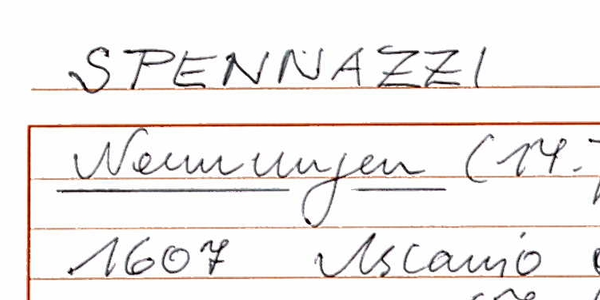 SPENNAZZI
Nennungen (17.
1607 Ascanio